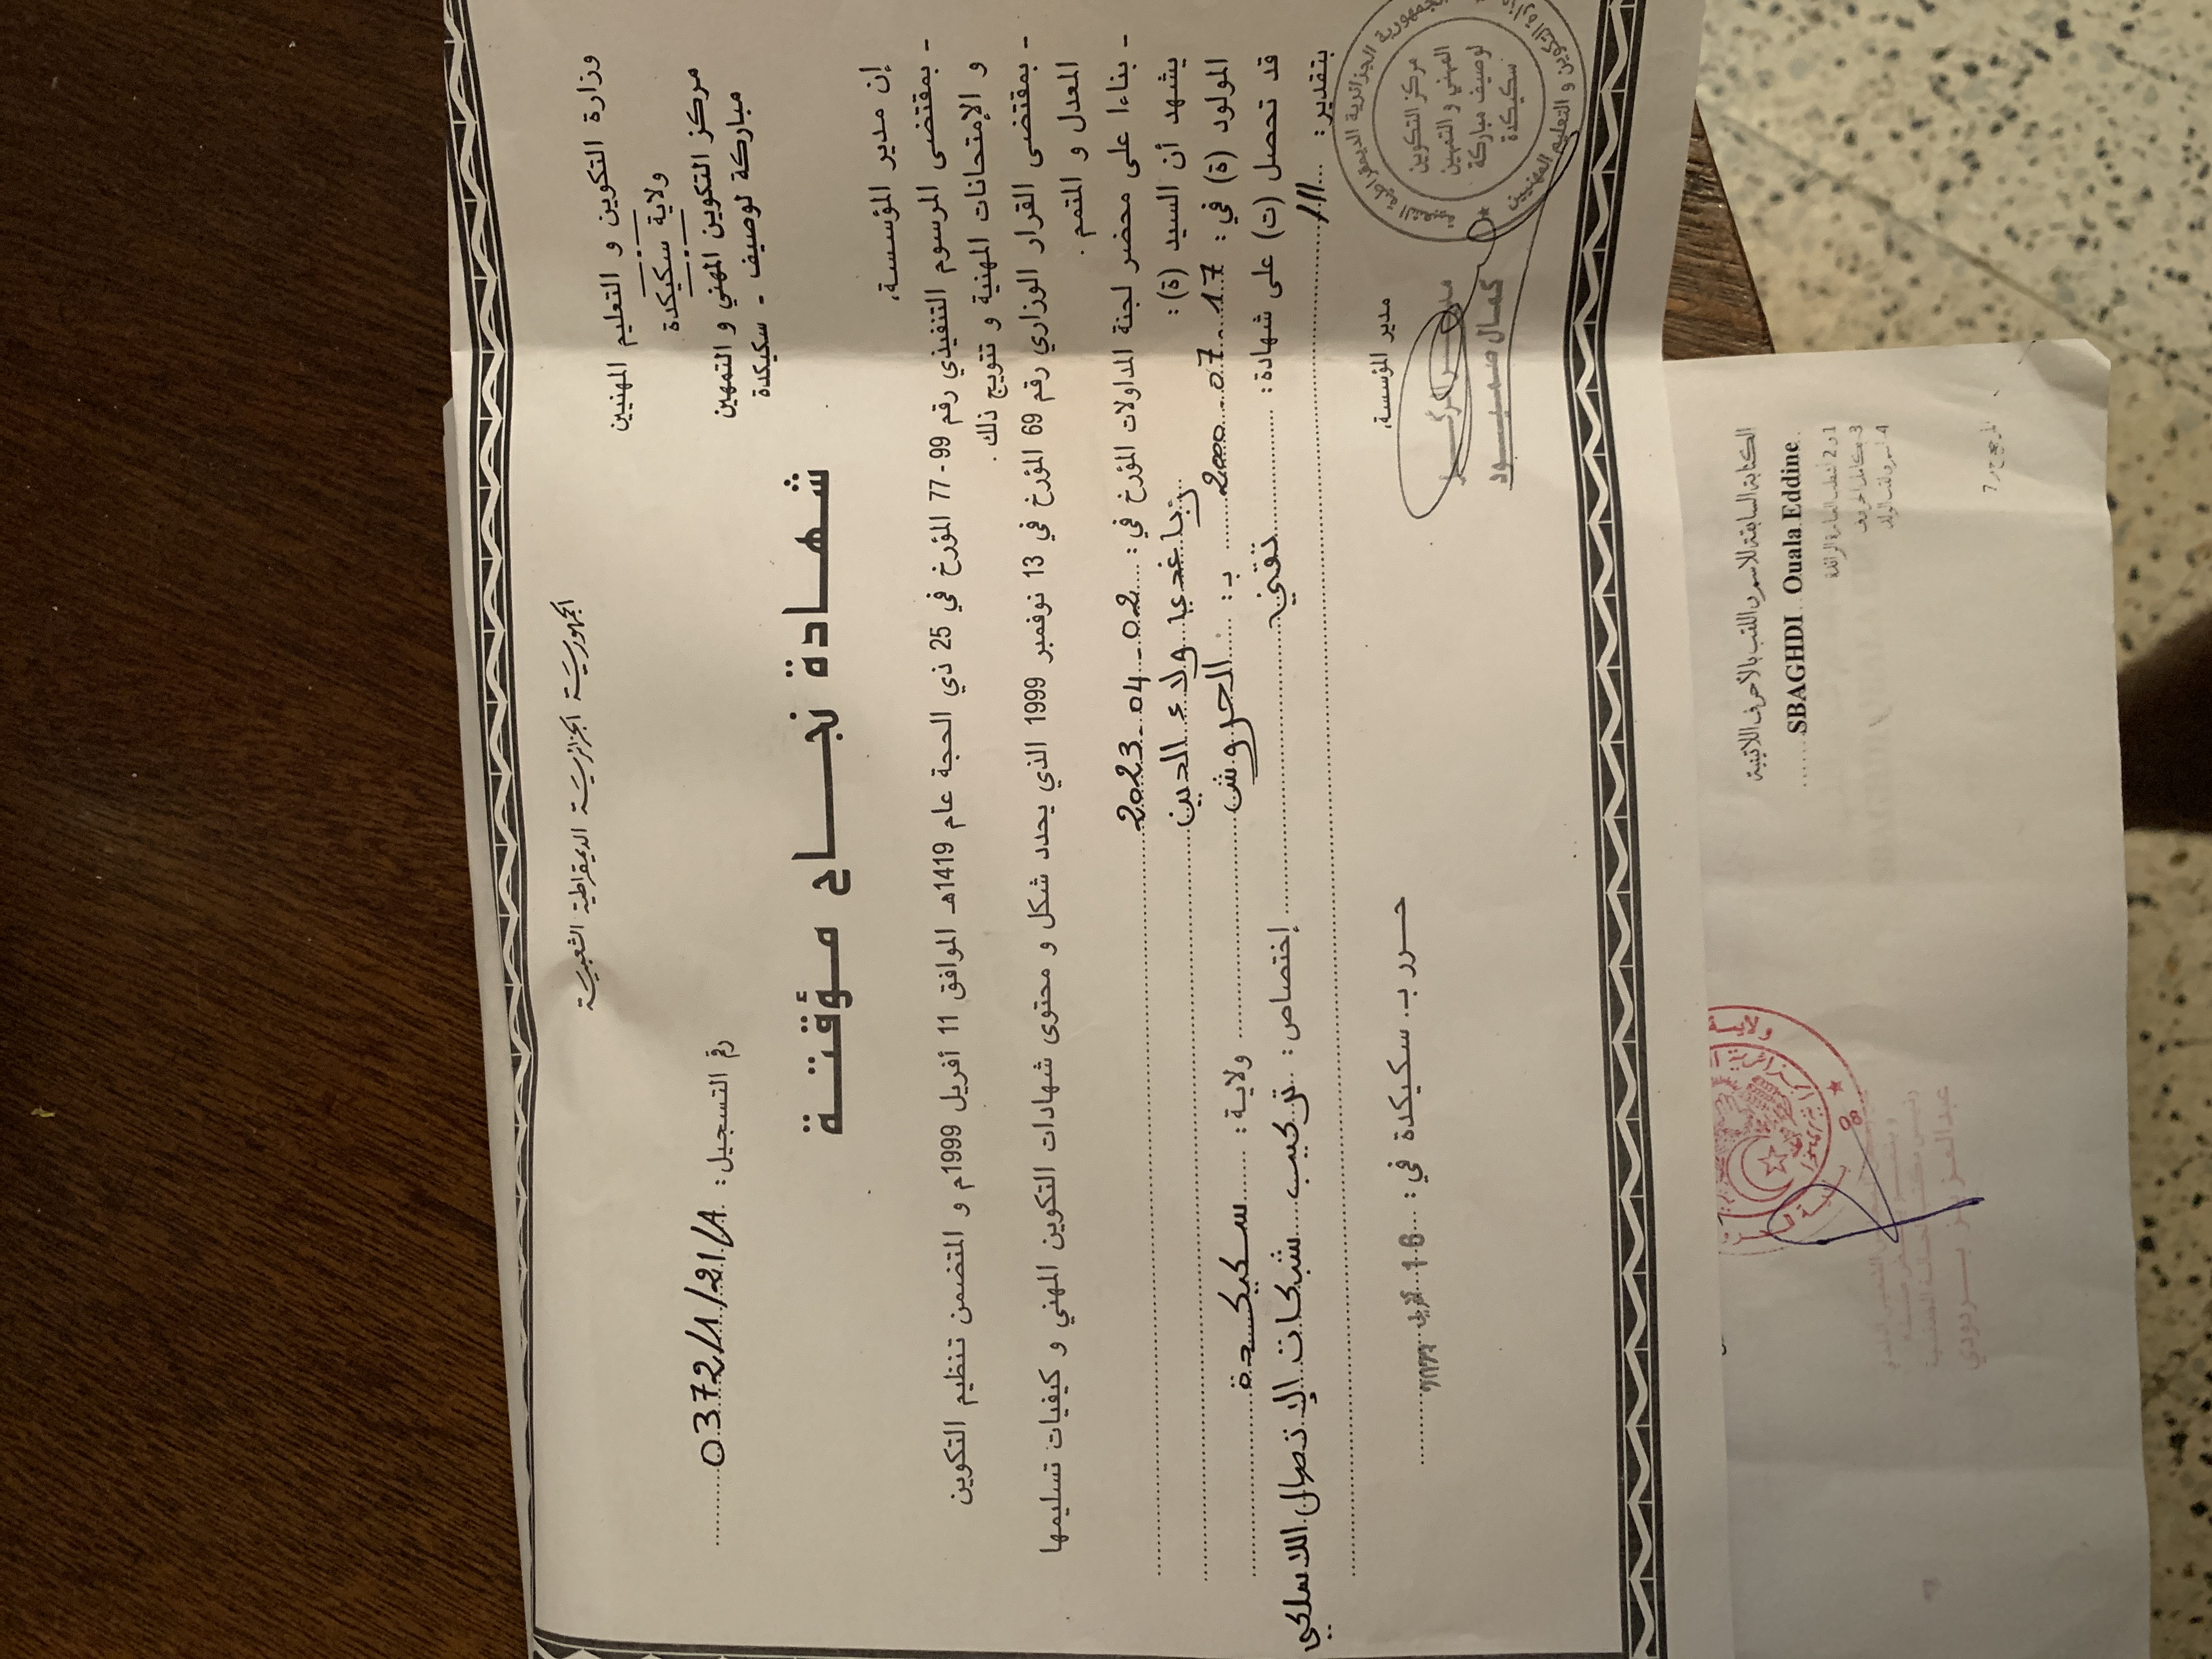 الجمهورية الجزائرية الديمقراطية الشعبية
وزارة التكوين و التعليم المهنيين
ولاية سكيكدة
مركز التكوين المهني و التمهين
مباركة لوصيف - سكيكدة
رقم التسجيل : 0372/1/21/A
شهادة نجاح مؤقتة
إن مدير المؤسسة،
- بمقتضى المرسوم التنفيذي رقم 99 - 77 المؤرخ في 25 ذي الحجة عام 1419هـ الموافق 11 أفريل 1999م و المتضمن تنظيم التكوين
و الإمتحانات المهنية و تتويج ذلك.
- بمقتضى القرار الوزاري رقم 69 المؤرخ في 13 نوفمبر 1999 الذي يحدد شكل و محتوى شهادات التكوين المهني و كيفيات تسليمها
المعدل و المتمم .
- بناءا على محضر لجنة المداولات المؤرخ في : 02-04-2023
يشهد أن السيد (ة) : ولاء الدين
المولود (ة) في : 17-07-2000 بـ : الحروش ولاية : سكيكدة
قد تحصل (ت) على شهادة : تقني إختصاص : تركيب شبكات الاتصال اللاسلكي
بتقدير : ///
حرر بـ سكيكدة في : 16
مدير المؤسسة،
مدير المركز
كمال صميود
الجمهورية الجزائرية الديمقراطية
وزارة التكوين و التعليم المهنيين
مركز التكوين
المهني و التمهين
لوصيف مباركة
سكيكدة
الكتابة السابقة للاسم و اللقب بالأحرف اللاتينية
SBAGHDI Ouala Eddine